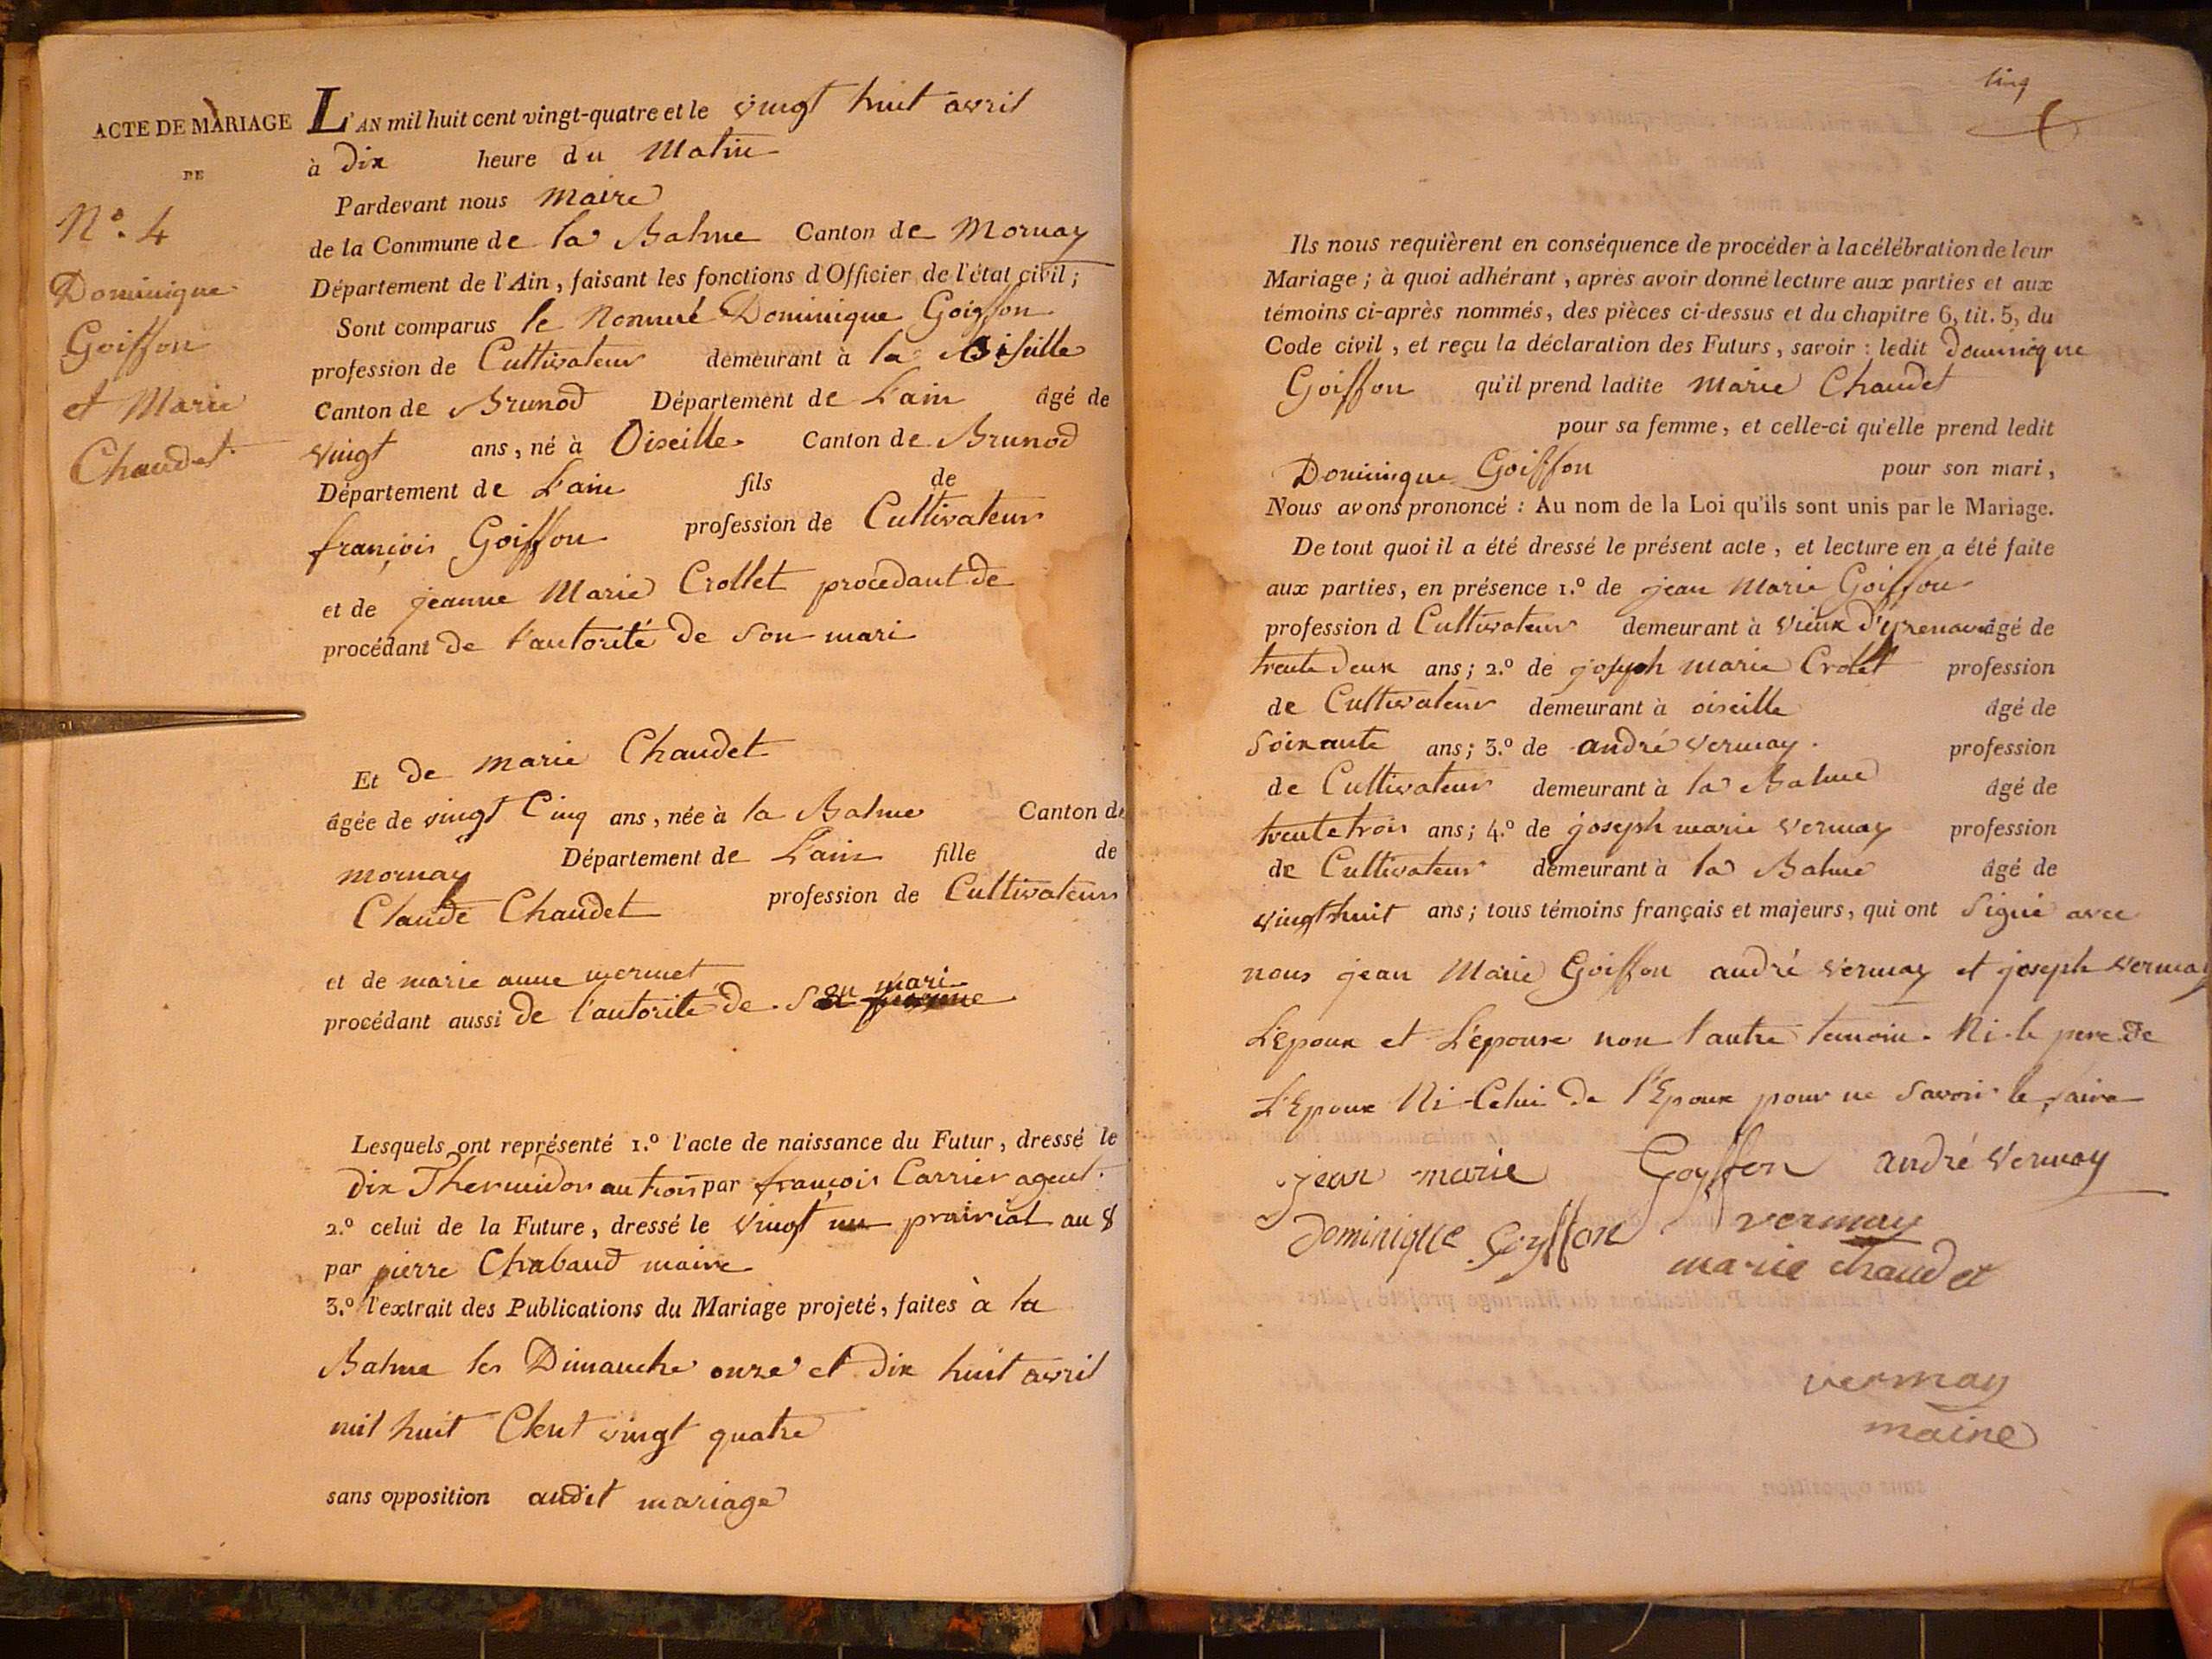 ACTE DE MARIAGE
DE
N.º 4
Dominique
Goiffon
et Marie
Chaudet
L'AN mil huit cent vingt-quatre et le vingt huit avril
à dix heure du Matin
Pardevant nous Maire
de la Commune de la Balme Canton de Mornay
Département de l'Ain, faisant les fonctions d'Officier de l'état civil;
Sont comparus le Nommé Dominique Goiffon
profession de Cultivateur demeurant à la
Canton de Brunod Département de L'ain âgé de
vingt ans, né à Oiseille Canton de Brunod
Département de L'ain fils de
françois Goiffon profession de Cultivateur
et de jeanne Marie Crollet procedant de
procédant de l'autorité de son mari
Et de marie Chaudet
âgée de vingt Cinq ans, née à la Balme Canton de
mornay Département de L'ain fille de
Claude Chaudet profession de Cultivateur
et de marie anne mermet
procédant aussi de l'autorité de son mari
Lesquels ont représenté 1.º l'acte de naissance du Futur, dressé le
dix Thermidor an trois par françois Carrier agent.
2.º celui de la Future, dressé le vingt un prairial an 8
par pierre Chabaud maire
3.º l'extrait des Publications du Mariage projeté, faites à la
Balme les Dimanche onze et dix huit avril
mil huit Cent vingt quatre
sans opposition audit mariage
Cinq
Ils nous requièrent en conséquence de procéder à la célébration de leur
Mariage; à quoi adhérant, après avoir donné lecture aux parties et aux
témoins ci-après nommés, des pièces ci-dessus et du chapitre 6, tit. 5, du
Code civil, et reçu la déclaration des Futurs, savoir: ledit Dominique
Goiffon qu'il prend ladite Marie Chaudet
pour sa femme, et celle-ci qu'elle prend ledit
Dominique Goiffon pour son mari,
Nous avons prononcé: Au nom de la Loi qu'ils sont unis par le Mariage.
De tout quoi il a été dressé le présent acte, et lecture en a été faite
aux parties, en présence 1.º de jean Marie Goiffon
profession d Cultivateur demeurant à vieux d'yzenave âgé de
trente deux ans; 2.º de joseph marie Crolet profession
de Cultivateur demeurant à oiseille âgé de
soixante ans; 3.º de andré vermay. profession
de Cultivateur demeurant à la Balme âgé de
trente trois ans; 4.º de joseph marie vermay profession
de Cultivateur demeurant à la Balme âgé de
vingt huit ans; tous témoins français et majeurs, qui ont signé avec
nous jean Marie Goiffon andré vermay et joseph vermay
L'Epoux et L'épouse non l'autre temoin. Ni le pere de
L'Epoux Ni Celui de l'Epoux pour ne savoir le faire
jean marie Goyffon andré vermay
dominique Goyffon vermay
marie chaudet
vermay
maire